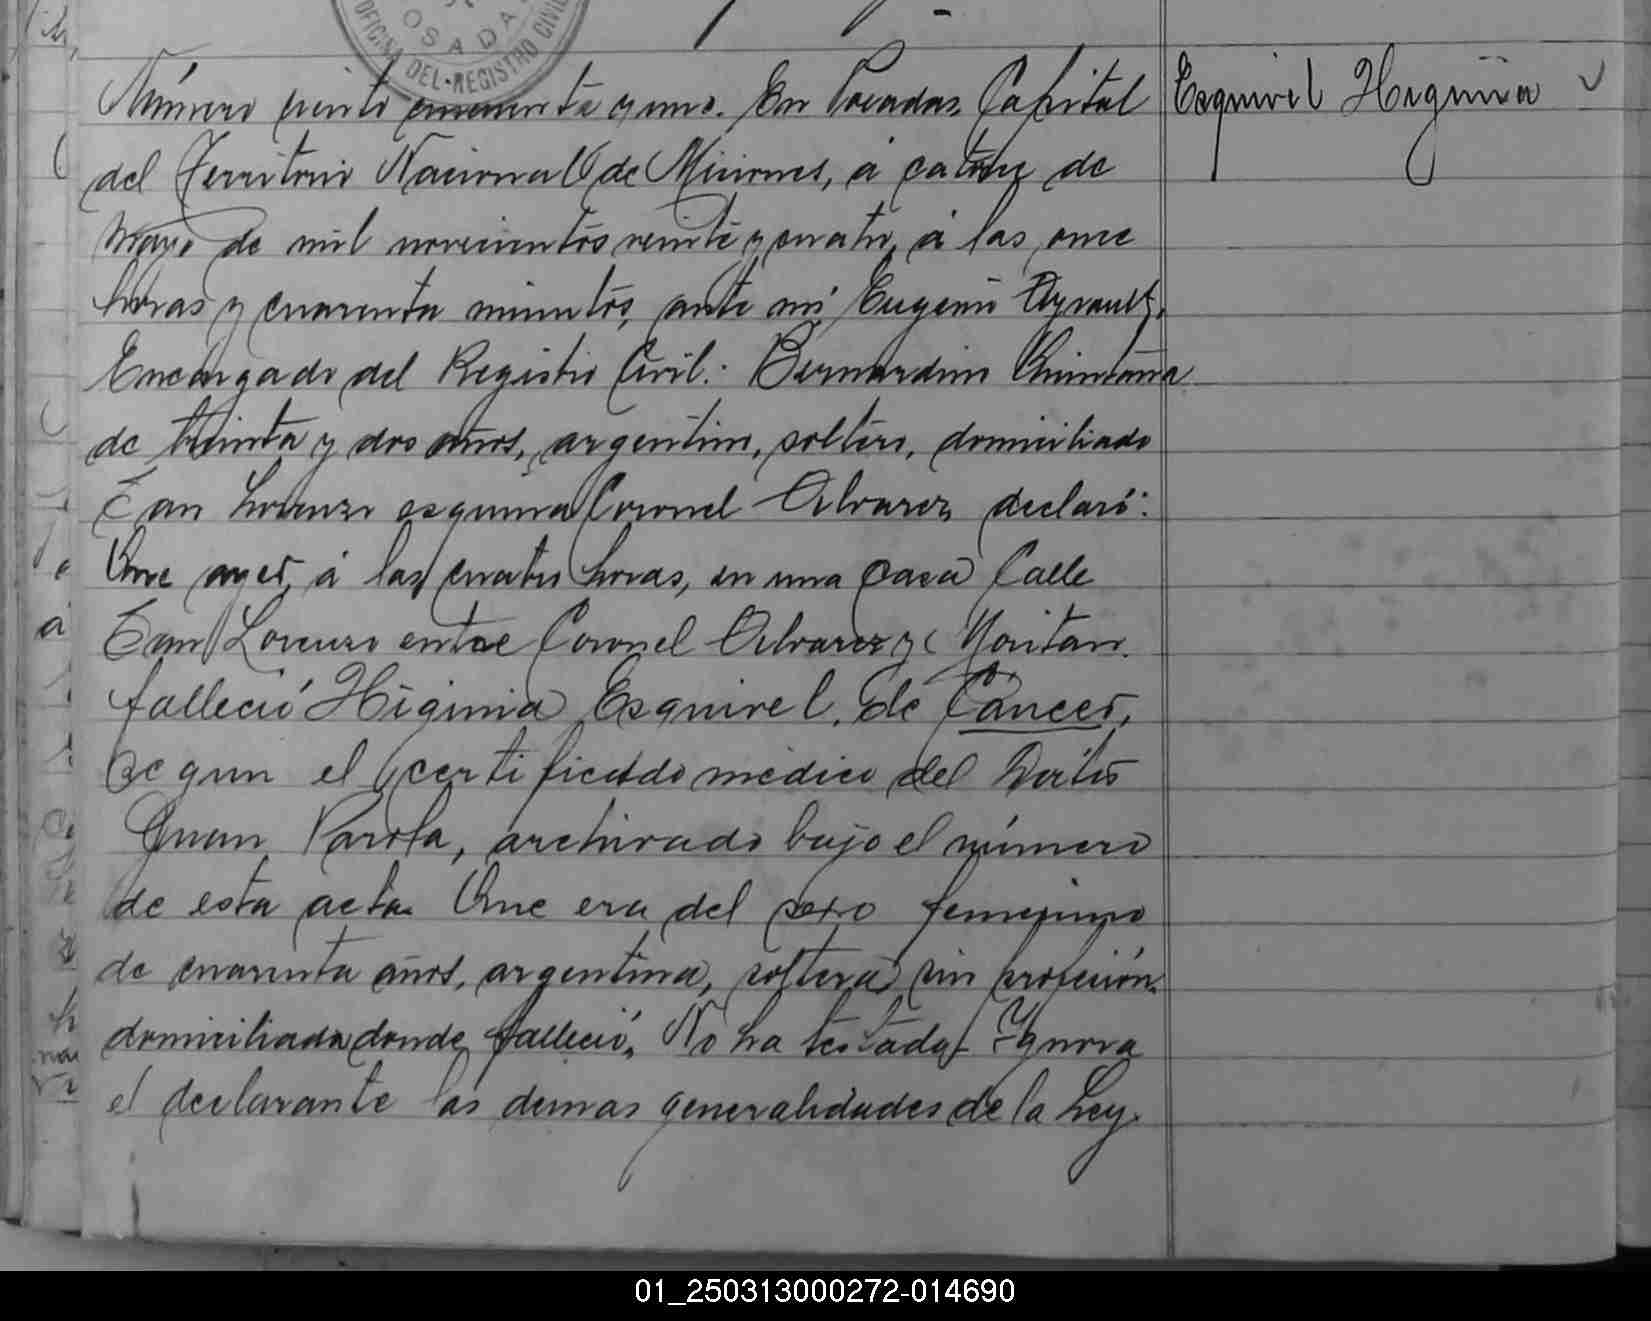 OSADA
OFICINA DEL REGISTRO CIVIL
Número ciento cincuenta y uno. En Posadas, Capital
Esquivel Higinia
del Territorio Nacional de Misiones, á catorce de
Mayo de mil novecientos veinte y cuatro, á las once
horas y cuarenta minutos, ante mi Eugenio Ayrault,
Encargado del Registro Civil: Bernardino Quintana
de treinta y dos años, argentino, soltero, domiciliado
San Lorenzo esquina Coronel Alvarez, declaró:
Que ayer, á las cuatro horas, en una casa Calle
San Lorenzo entre Coronel Alvarez y
falleció Higinia Esquivel, de Cancer,
segun el certificado médico del Doctor
Juan Parola, archivado bajo el número
de esta acta. Que era del sexo femenino
de cuarenta años, argentina, soltera, sin profesión,
domiciliada donde falleció. No ha testado. Ignora
el declarante las demas generalidades de la Ley.
01_250313000272-014690